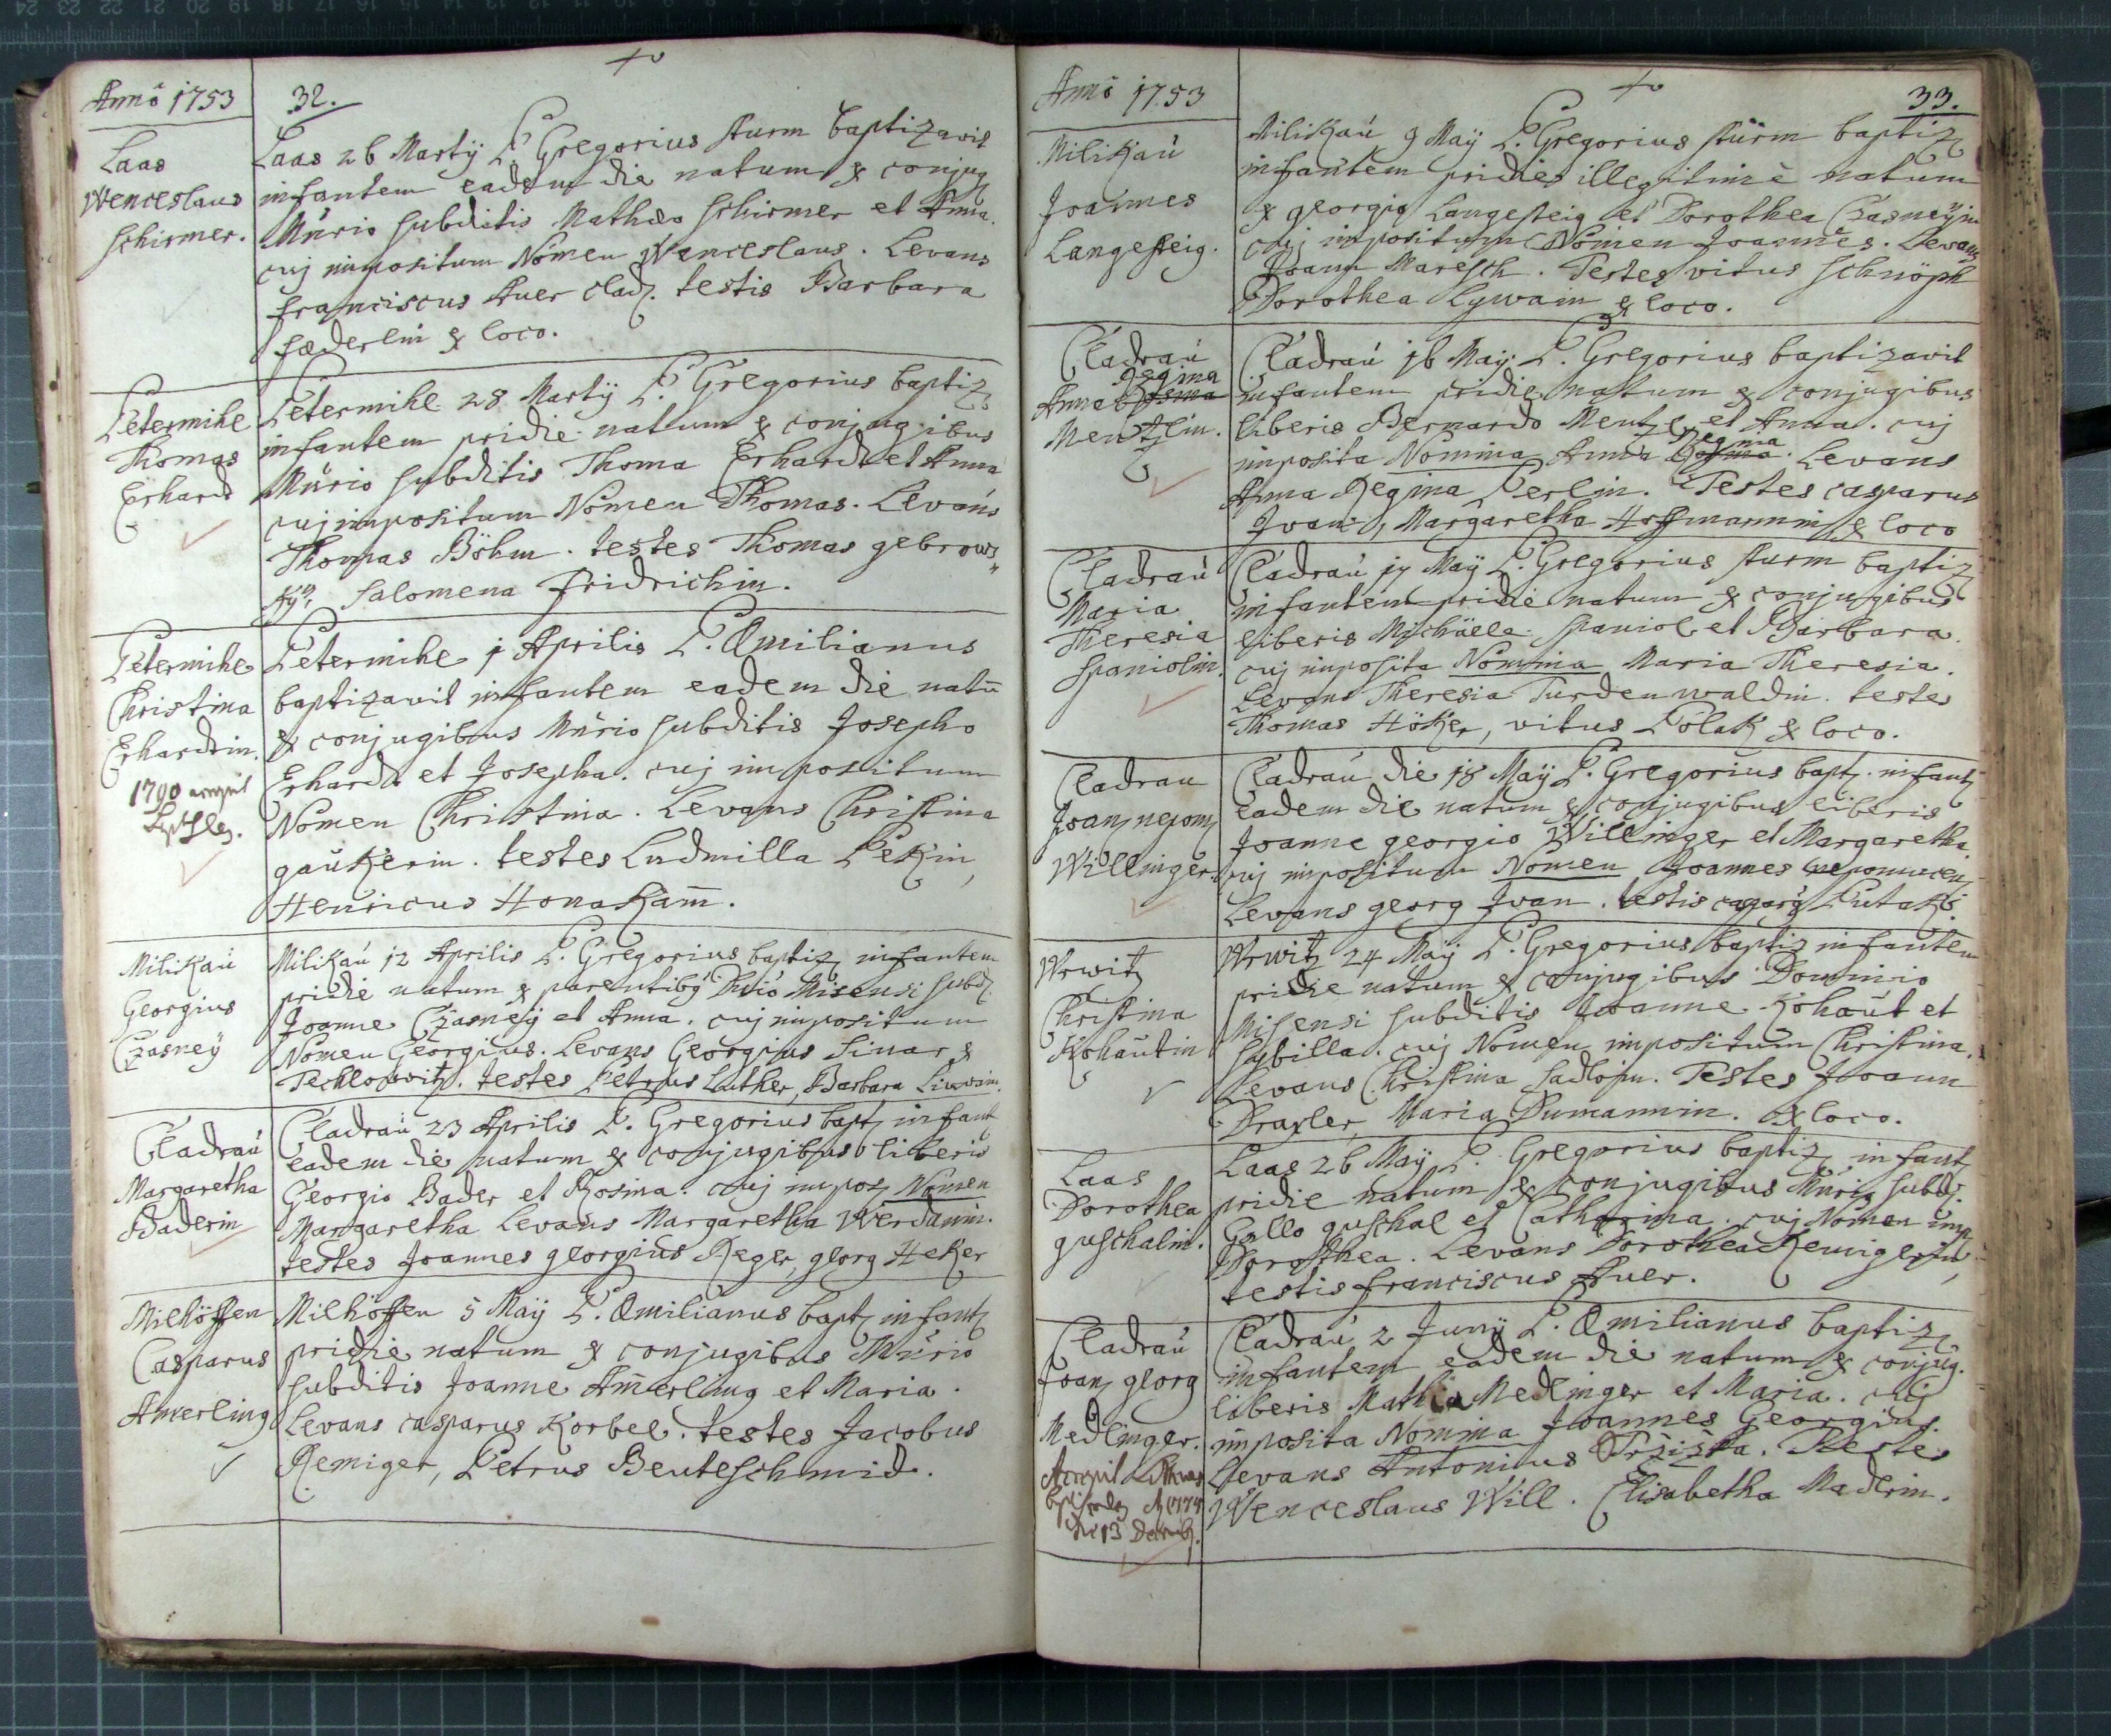 Annô 1753
32.
Laas
Wenceslaus
Schirmer.
Laas 26 Martÿ P. Gregorius Sturm baptizavit
infantem eadem die natum ex conjug
Mûrio subditis Mathæo Schirmer et Anna.
cuj impositum Nomen Wenceslaus. Levans
Franciscus Auer clad. testis Barbara
fæderlin ex loco.
Petermihl
Thomas
Erhard
Petermihl 28 Martÿ P. Gregorius baptiz
infantem pridie natum ex conjugibus
Mûrio subditis Thoma Erhardt et Anna
cuj impositum Nomen Thomas. Levans
Thomas Böhm. testes Thomas gebrow,,
Salomena Fridrichin.
Petermihl
Christina
Erhardtin.
1790
Petermihl 1 Aprilis P. Æmilianus
baptizavit infantem eadem die natū
ex conjugibus Mûrio subditis Josepho
Erhardt et Josepha. cuj impositum
Nomen Christina. Levans Christina
gaukerin. testes Ludmilla Pekin,
Henricus Honakam̄.
Milikaú
Georgius
Czasneÿ
Milikaú 12 Aprilis P. Gregorius baptiz infantem
pridie natum ex parentibg Dnio Misensi subd
Joanne Czasneÿ et Anna. cuj impositum
Nomen Georgius. Levans Georgius Sinar ex
Techlowitz. testes Petrus Luther, Barbara Liwwain.
Cladraú
Margaretha
Baderin
Cladraú 23 Aprilis P. Gregorius bapt infant
eadem die natum ex conjugibus liberis
Georgio Bader et Rosina. cuj impos Nomen
Margaretha Levans Margaretha Werdanin.
testes Joannes georgius Reger, georg Heker
Milhöffen
Casparus
Amerling
Milhöffen 5 Maÿ P. Æmilianus bapt infant
pridie natum ex conjugibus Mûrio
subditis Joanne Am̄erling et Maria.
Levans casparus Korbel. testes Jacobus
Remiger, Petrus Beuteschmid.
Annô 1753
33.
Milikaú
Joannes
Langesteig.
Milikaú 9 Maÿ P. Gregorius Sturm baptiz
infantem pridie illegitimè natum
ex georgio Langesteig et Dorothea Czasneÿin
cuj impositum Nomen Joannes. Levans
Joann Maresch. Testes vitus Schnöph
Dorothea Lywain ex loco.
Cladraú
Regina
Anna Rosina
Mentzlin.
Cladraú 16 Maÿ P. Gregorius baptizavit
infantem pridie natum ex conjugibus
liberis Bernardo Mentzl et Anna. cuj
Regina
imposita Nomina Anna Rosina. Levans
Anna Regina Perlin. Testes casparus
Ivan, Margaretha Hoffmannin ex loco
Cladraú
Maria
Theresia
Spaniolin.
Cladraú 17 Maÿ P. Gregorius Sturm baptiz
infantem pridie natum ex conjugibus
liberis Michäele Spaniol et Barbara.
cuj imposita Nomina Maria Theresia.
Levans Theresia Turdenwaldin. testes
Thomas Höker, vitus Polak ex loco.
Cladrau
Joan nepom
Willinger
Cladraú die 18 Maÿ P. Gregorius bapt. infant
eadem die natum ex conjugibus liberis
Joanne georgio Willinger et Margaretha
cuj impositum Nomen Joannes nepomucen
Levans georg Ivan. testis Putakÿ.
Wrwitz
Christina
Kohautin
Wrwitz 24 Maÿ P. Gregorius baptiz infantem
pridie natum ex conjugibus Dominio
Misensi subditis Joanne Kohaut et
Sybilla. cuj Nomen impositum Christina.
Levans Christina Sadlopin. Testes Joann
Draxler, Maria Dumannin. ex loco.
Laas
Dorothea
guschalin.
Laas 26 Maÿ P. Gregorius baptiz infant
pridie natum ex conjugibus Mûrio subd.
Gallo guschal et Catharina. cuj Nomen imp
Dorothea. Levans Dorothea Remigerin,
testis franciscus Auer.
Cladraú
Joan georg
Medlinger.
die 13
Cladraú 2 Junÿ P. Æmilianus baptiz
infantem eadem die natum ex conjug.
liberis Mathia Medlinger et Maria. cuj
imposita Nomina Joannes Georgius.
Levans Antonius Trzizka. Testes
Wenceslaus Will. Elisabetha Maderin.